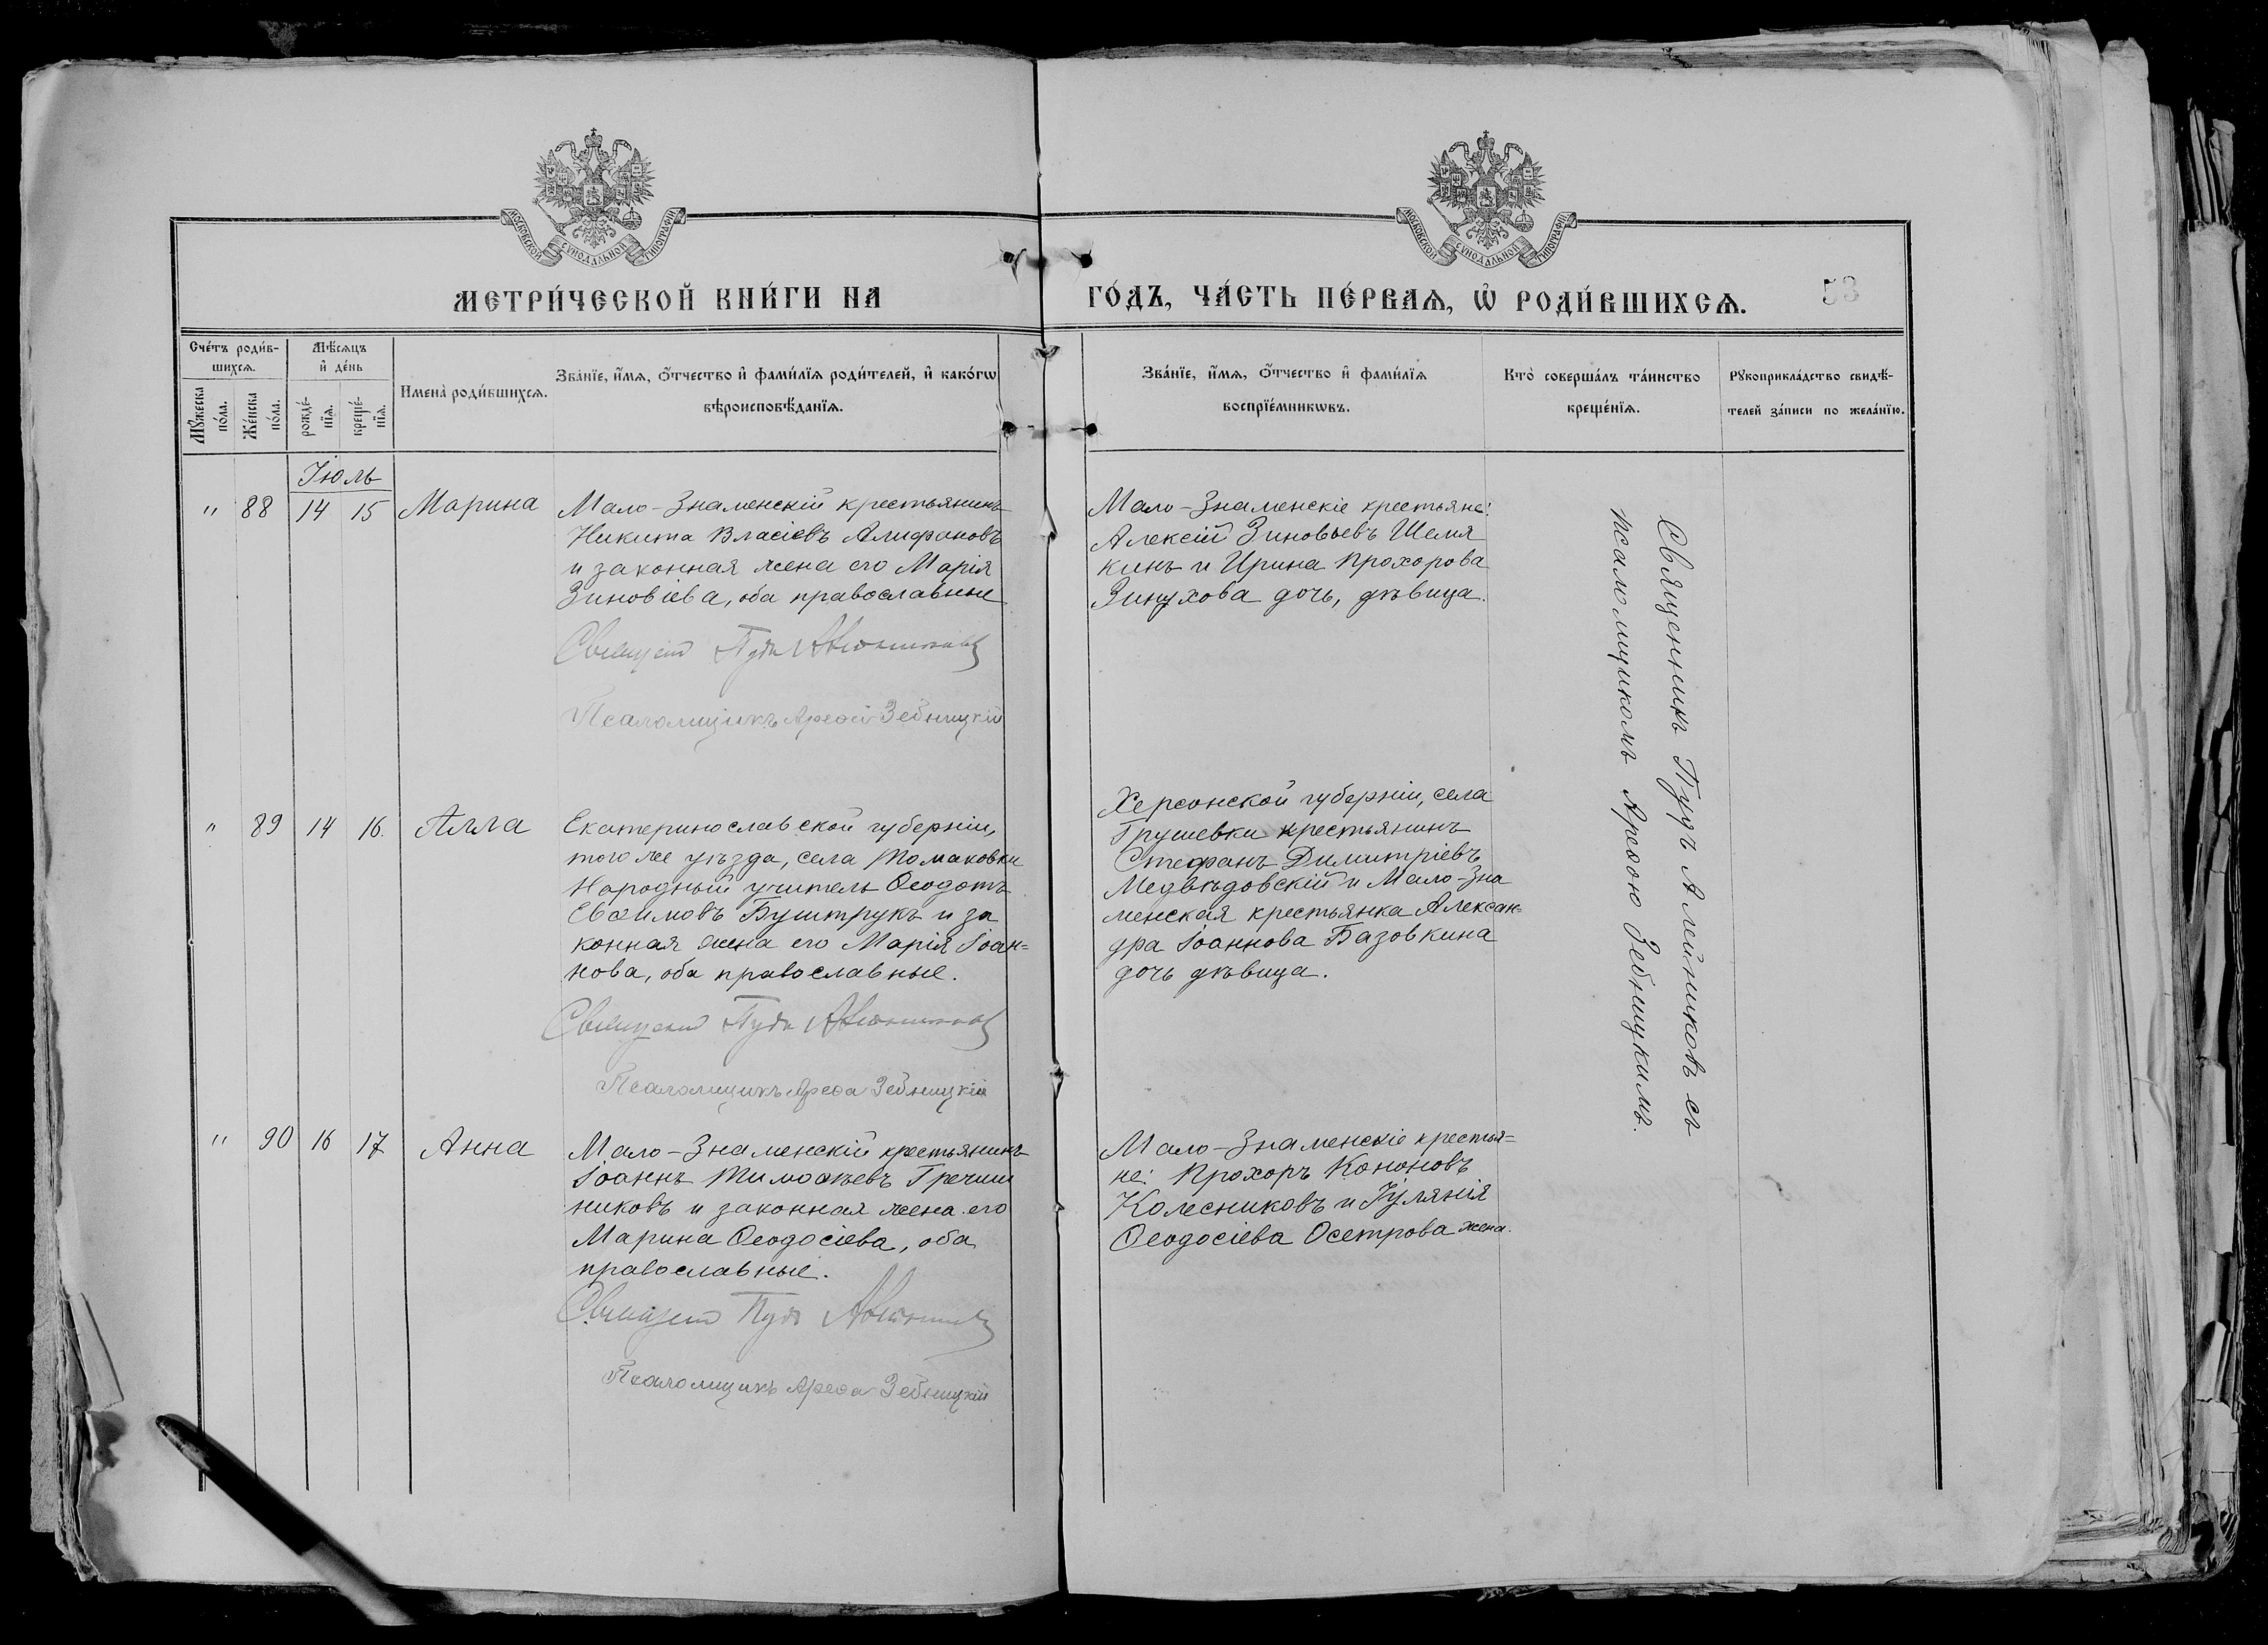 МОСКОВСКОЙ СѴНОДАЛЬНОЙ ТИПОГРАФІИ
МОСКОВСКОЙ СѴНОДАЛЬНОЙ ТИПОГРАФІИ
МЕТРИ́ЧЕСКОЙ КНИ́ГИ НА
ГО́ДЪ, ЧА́СТЬ ПЕ́РВАѦ, Ѡ҆ РОДИ́ВШИХСѦ.
53
Сче́тъ роди́в-
шихсѧ.
Мꙋжеска
по́ла.
Же́нска
по́ла.
Мѣ́сѧцъ
и҆ де́нь
рожде́-
нїѧ.
креще́-
нїѧ.
Имена̀ роди́вшихсѧ.
Зва́нїе, и҆́мѧ, ѻ҆́тчество и҆ фами́лїѧ роди́телей, и҆ како́гѡ
вѣроисповѣ́данїѧ.
Зва́нїе, и҆́мѧ, ѻ҆́тчество и҆ фами́лїѧ
воспрїе́мникѡвъ.
Кто̀ соверша́лъ та́инство
креще́нїѧ.
Рꙋкоприкла́дство свидѣ́-
телей за́писи по жела́нїю.
Іюль
" 88 14 15 Марина
Мало-Знаменскій крестьянинъ
Никита Власіевъ Алифановъ
и законная жена его Марія
Зиновіева, оба православные
Пудъ
Псаломщикъ Зебницкій
Мало-Знаменскіе крестьяне:
Алексій Зиновьевъ Шемя
кинъ и Ирина Прохорова
Зинухова дочь, дѣвица.
Священникъ Пудъ Алейниковъ съ
псаломщикомъ Арефою Зебницкимъ.
" 89 14 16. Алла
Екатеринославской губерніи,
того же уѣзда, села Томаковки
Народный учитель Ѳеодотъ
Евѳимовъ Буштрукъ и за
конная жена его Марія Іоан=
нова, оба православные.
Пудъ
Псаломщикъ Ареѳа Зебницкій
Херсонской губерніи, села
Грушевки крестьянинъ
Стефанъ Димитріевъ
Медвѣдовскій и Мало-Зна
менская крестьянка Алексан=
дра Іоаннова Базовкина
дочь дѣвица.
" 90 16 17 Анна
Мало-Знаменскій крестьянинъ
Іоаннъ Тимоѳеевъ Гречиш
никовъ и законная жена его
Марина Ѳеодосіева, оба
православные.
Пудъ
Псаломщикъ Ареѳа Зебницкій
Мало-Знаменскіе крестья=
не: Прохоръ Кононовъ
Колесниковъ и Іулянія
Ѳеодосіева Осетрова жена.